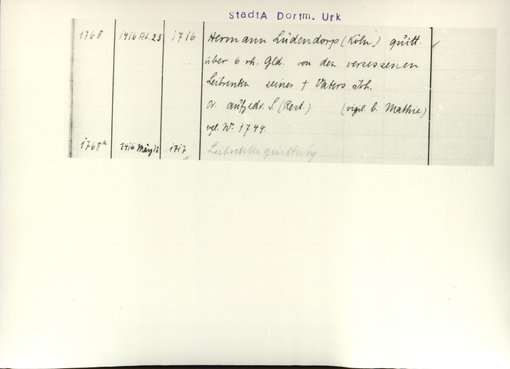 StadtA Dortm. Urk
1768 1416 Feb. 23 1716 Hermann Lüdendorp (Köln) quitt.
über 6 rh. Gld. von den versessenen
Leibrenten seines † Vaters Joh.
Or. aufgedr. S. (Rest.) (vigil. b. Mathie)
vgl. Nr. 1744.
1768a 1416 März 13 1717 Leibrentenquittung